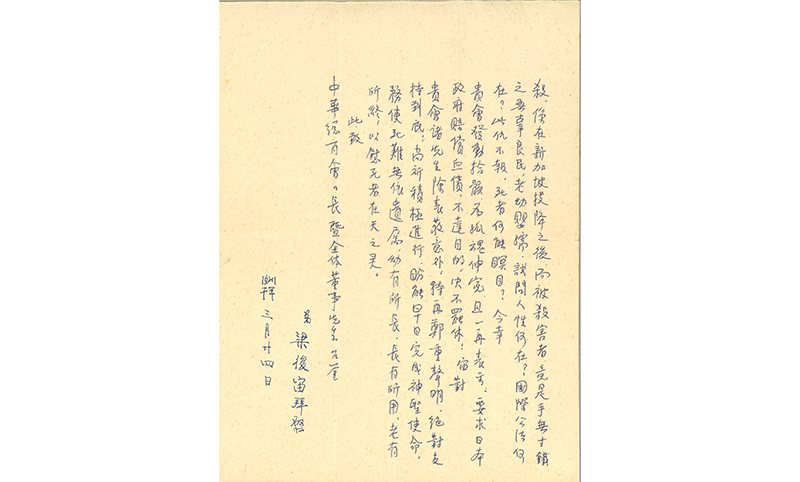 殺，係在新加坡投降之後，而被殺害者竟是手無寸鐵
之無辜良民，老幼嬰孺，試問人性何在？國際公法何
在？此仇不報，死者何能瞑目？今幸
貴會發動拾骸為孤魂伸冤且一再表示，要求日本
政府賠償血債，不達目的，決不罷休！宙對
貴會諸先生除表敬意外，特再鄭重聲明，絕對支
持到底，尚祈積極進行，盼能早日完成神聖使命，
務使死難無依遺屬，幼有所長，長有所用，老有
所終，以慰死者在天之灵。
此致
中華總商會會長暨全体董事先生公鑒
弟 梁後宙拜啓
三月廿四日